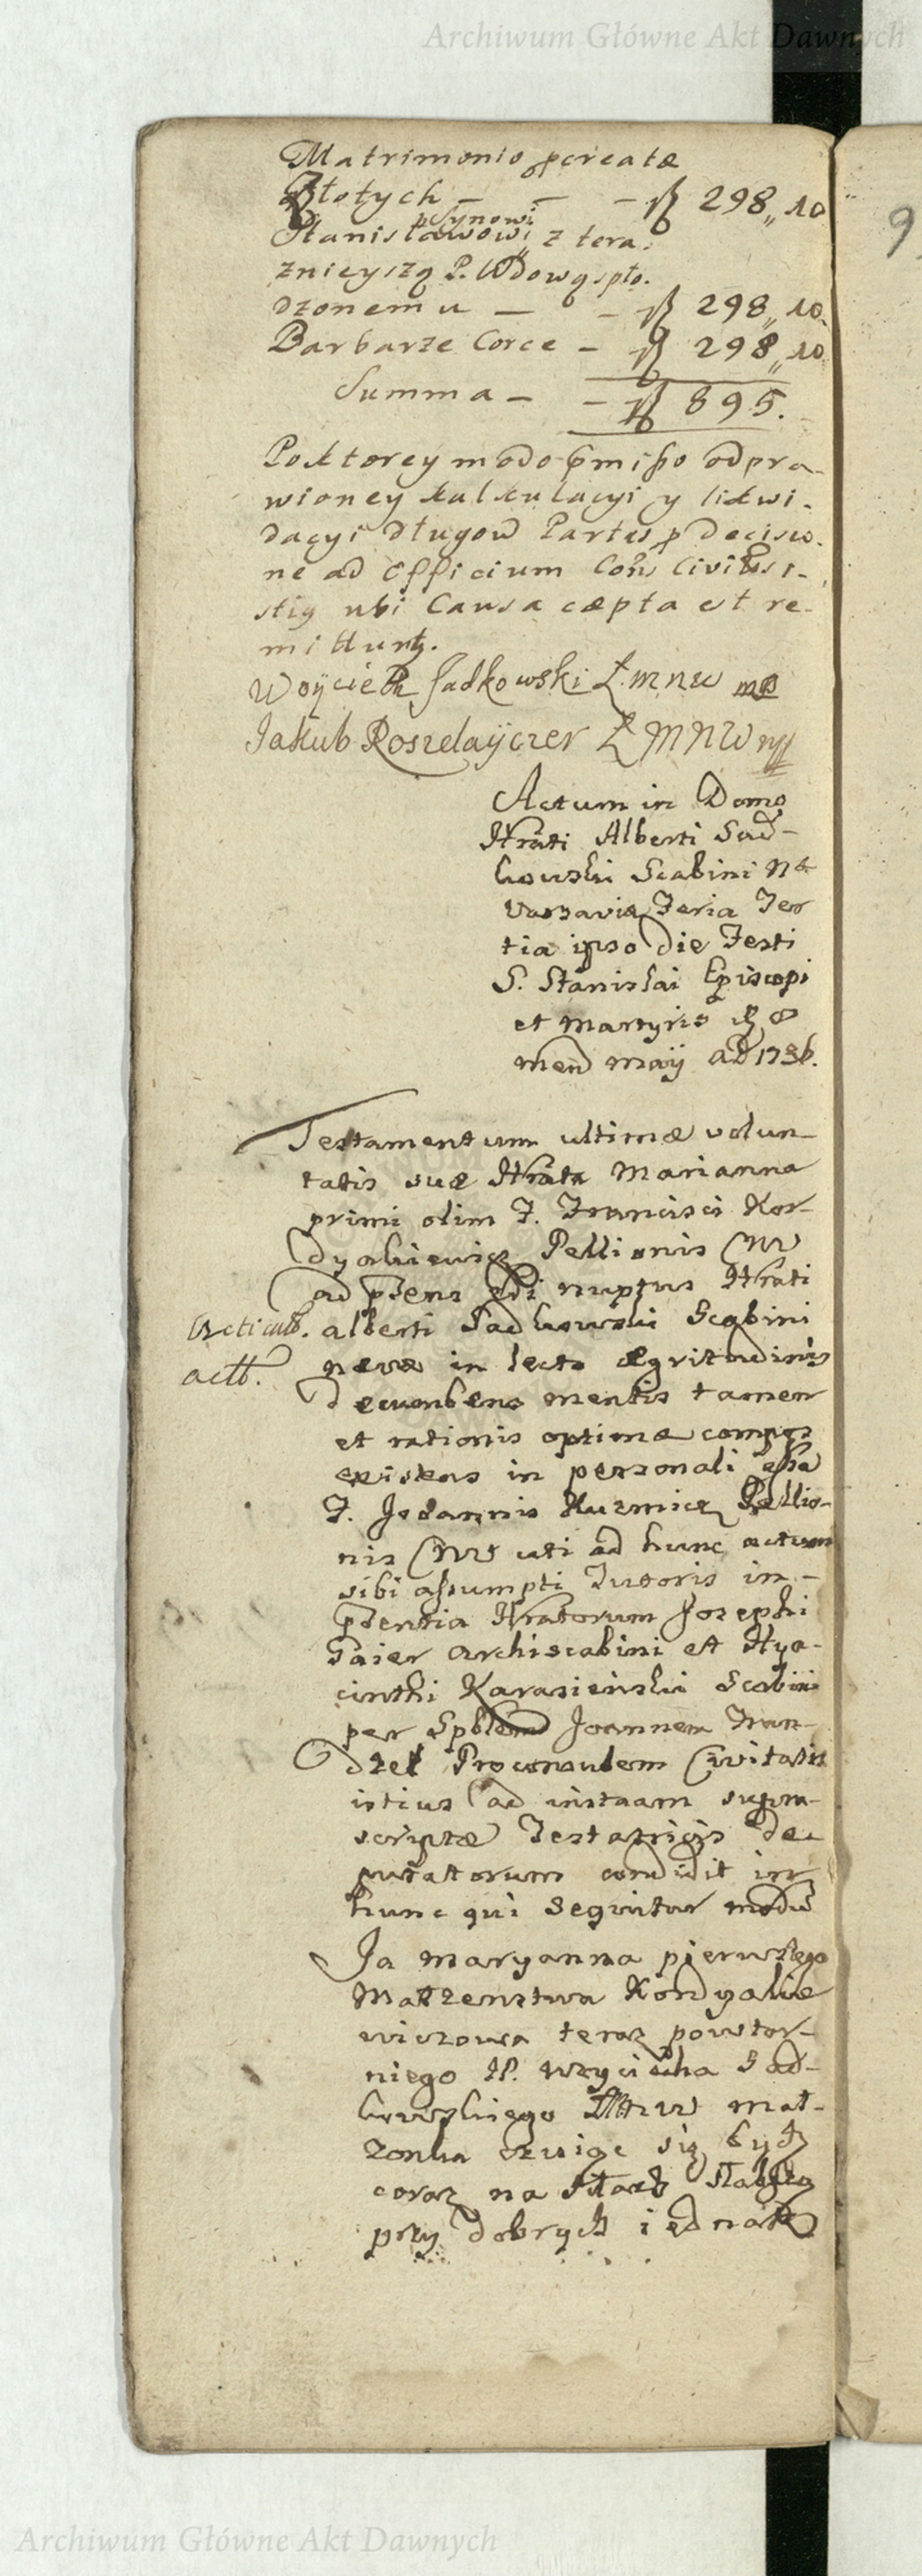 Archiwum Główne Akt Dawnych
Matrimonio pcreatæ
Złotych — — — fl 298,, 10
p Synowi
Stanisławowi z tera:
znieyszą P. Wdową spło.
dzonemu — — fl 298,, 10
Barbarze Corce — fl 298,, 10
Summa — — fl 895.
9
Po ktorey modo pmisso odpra-
wioney kalkulacyi y likwi-
dacyi długow Partes p decisio.
ne ad officium Cons Civitts i-
stig ubi Causa cæpta est re-
mittunt.
Woyciech Sadkowski Ł.M N W mp
Jakub Roszelayczer Ł M N W mp
Actum in Domo
Hrati Alberti Sad-
kowski Scabini Na
Varsaviæ Feria Ter
tia ipso die Festi
S. Stanislai Episcopi
et Martyris 8
men maij AD 1736.
Testamentum ultimæ volun-
tatis suæ Hrata Marianna
primi olim F. Francisci Kor-
dyakiewicz Pellionis CNV
ad psens nuptus Hrati
Acticat. alberti Sadkowski Scabini
actt. nevæ in lecto ægritudinis
decumbens mentis tamen
et rationis optimæ compos
existens in personali assa
F. Joannis Kuzmicz Pellio-
nis CNV uti ad hunc actum
sibi assumpti Tutoris in -
psentia Hratorum Josephi
Paier Archiscabini et Hya-
cinthi Karasienski Scabini
per Spblem Joannem Fran-
dzel Proconsulem Civitatis
istius ad instaam supra-
scriptæ Testatricis de-
putattorum condidit in
hunc qui sequitur modu
Ja Maryanna pierwszego
Małżenstwa Kordyakie
wiczowa teraz powtor-
niego JP. Woyciecha Sad-
kowskiego ŁMNW mał-
zonka czuiąc się bydz
coraz na siłach słabszą
przy dobrych iednak
Archiwum Główne Akt Dawnych